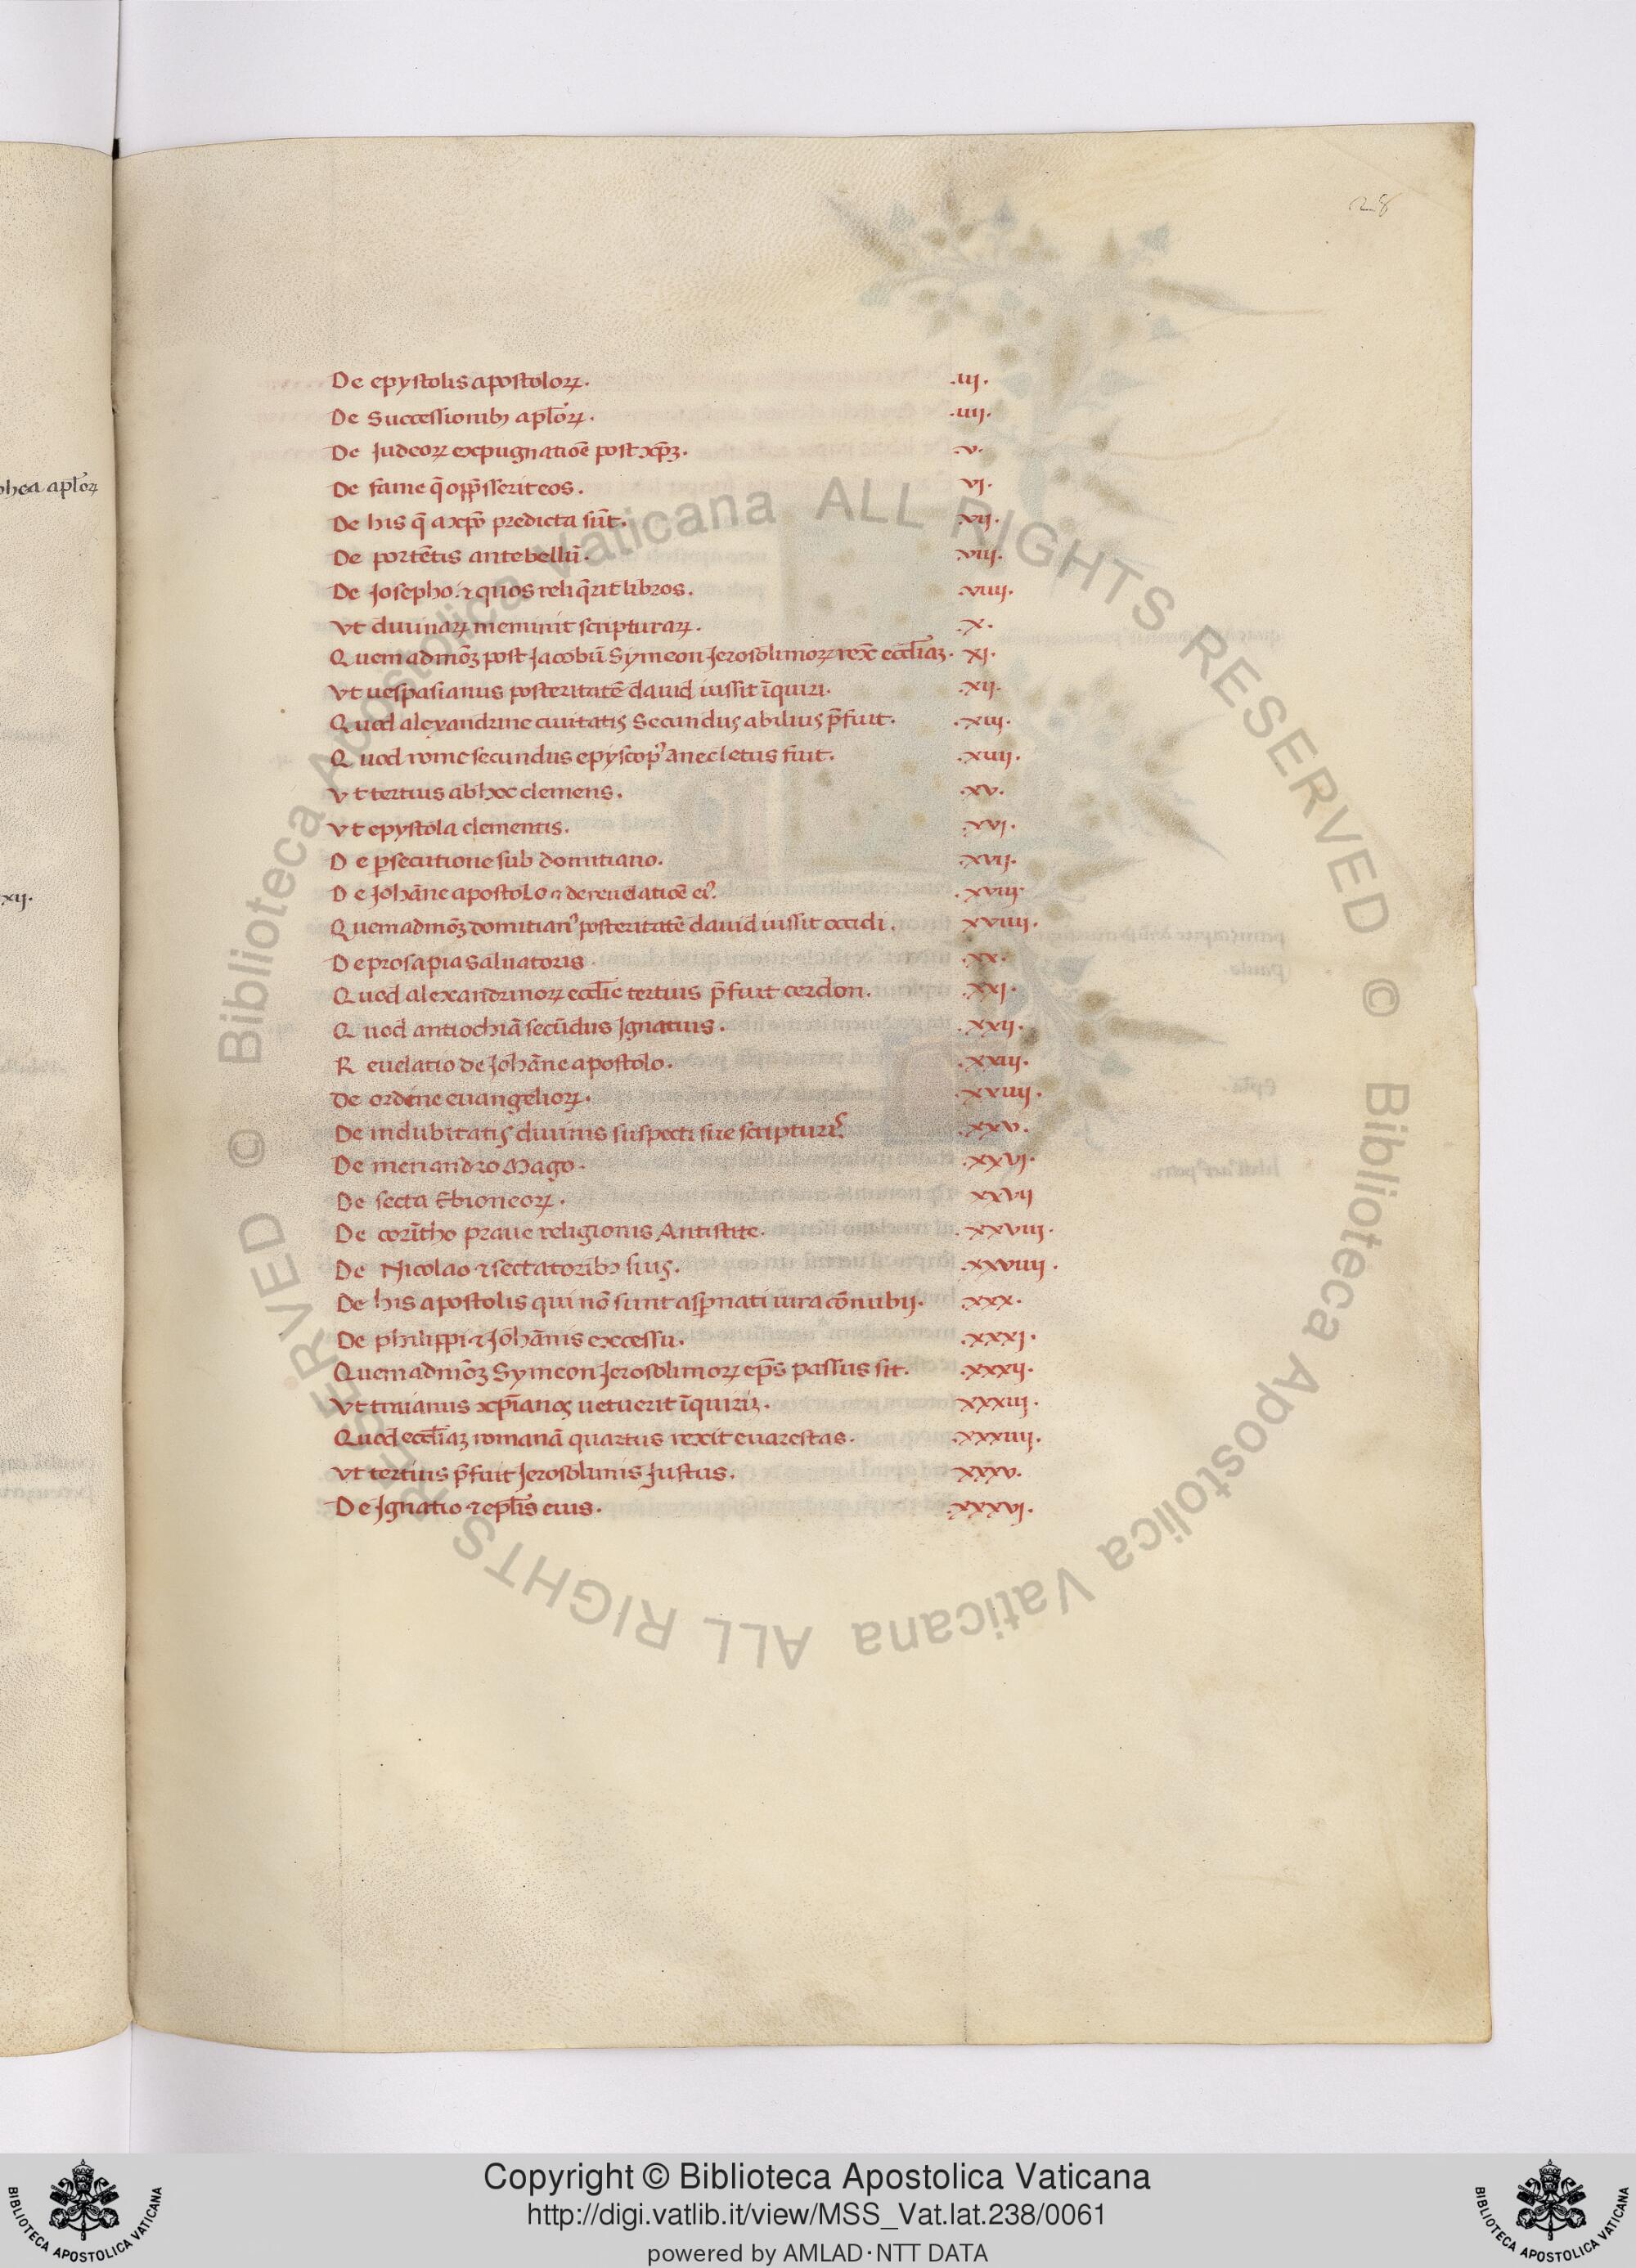 28
De epystolis apostoloꝝ. .iij.
De Successionibꝫ apl̄oꝝ. .iiij.
De Judeoꝝ expugnatiōe post xp̄ꝫ. .v.
De fame q̄ opp̄sserit eos. vj.
De his q̄ a xp̄o predicta sūt. .vij.
De portētis ante bellū. .viij.
De Josepho. ⁊ quos reliq̄rit libros. .viiij.
Vt diuinaꝝ meminit scripturaꝝ. .x.
Quemadmōꝫ post Jacobū Symeon Jerosolimoꝝ rex̄ eccl̄iaꝫ. xj.
Vt uespasianus posteritatē dauid iussit īquiri. .xij.
Quod alexandrine ciuitatis Secundus abilius p̄fuit. .xiij.
Quod rome secundus epyscopꝰ anecletus fuit. .xiiij.
Vt tertius ab hoc clemens. .xv.
Vt epystola clementis. .xvj.
De ꝑsecutione sub domitiano. .xvij.
De Johāne apostolo ⁊ de reuelatiōe eiꝰ. .xviij.
Quemadmōꝫ domitianꝰ posteritatē dauid iussit occidi. xviiij.
De prosapia Saluatoris. .xx.
Quod alexandrinoꝝ eccl̄ie tertius p̄fuit cerdon. .xxj.
Quod antiochiā secūdus Jgnatius. .xxij.
Reuelatio de Johāne apostolo. .xxiij.
de ordine euangelioꝝ. .xxiiij.
De indubitatis diuinis suspectisue scripturis. .xxv.
De menandro Mago. .xxvj.
De secta Ebioneoꝝ. xxvij
De corītho praue religionis Antistite. .xxviij.
De Nicolao ⁊ sectatoribꝫ suis. .xxviiij.
De his apostolis qui nō sunt asꝑnati iura cōnubij. .xxx.
De philippi ⁊ Johānis excessu. .xxxj.
Quemadmōꝫ Symeon Jerosolimoꝝ ep̄s passus sit. .xxxij.
Vt traianus xp̄ianos uetuerit īquiri. .xxxiij.
Quod eccl̄iaꝫ romanā quartus rexit euarestas. .xxxiiij.
Vt tertius p̄fuit Jerosolimis Justus. .xxxv.
De Jgnatio ⁊ epl̄is eius. .xxxvj.
apl̄oꝝ
xij.
© Biblioteca Apostolica Vaticana ALL RIGHTS RESERVED
© Biblioteca Apostolica Vaticana ALL RIGHTS RESERVED
BIBLIOTECA APOSTOLICA VATICANA
Copyright © Biblioteca Apostolica Vaticana
http://digi.vatlib.it/view/MSS_Vat.lat.238/0061
powered by AMLAD·NTT DATA
BIBLIOTECA APOSTOLICA VATICANA